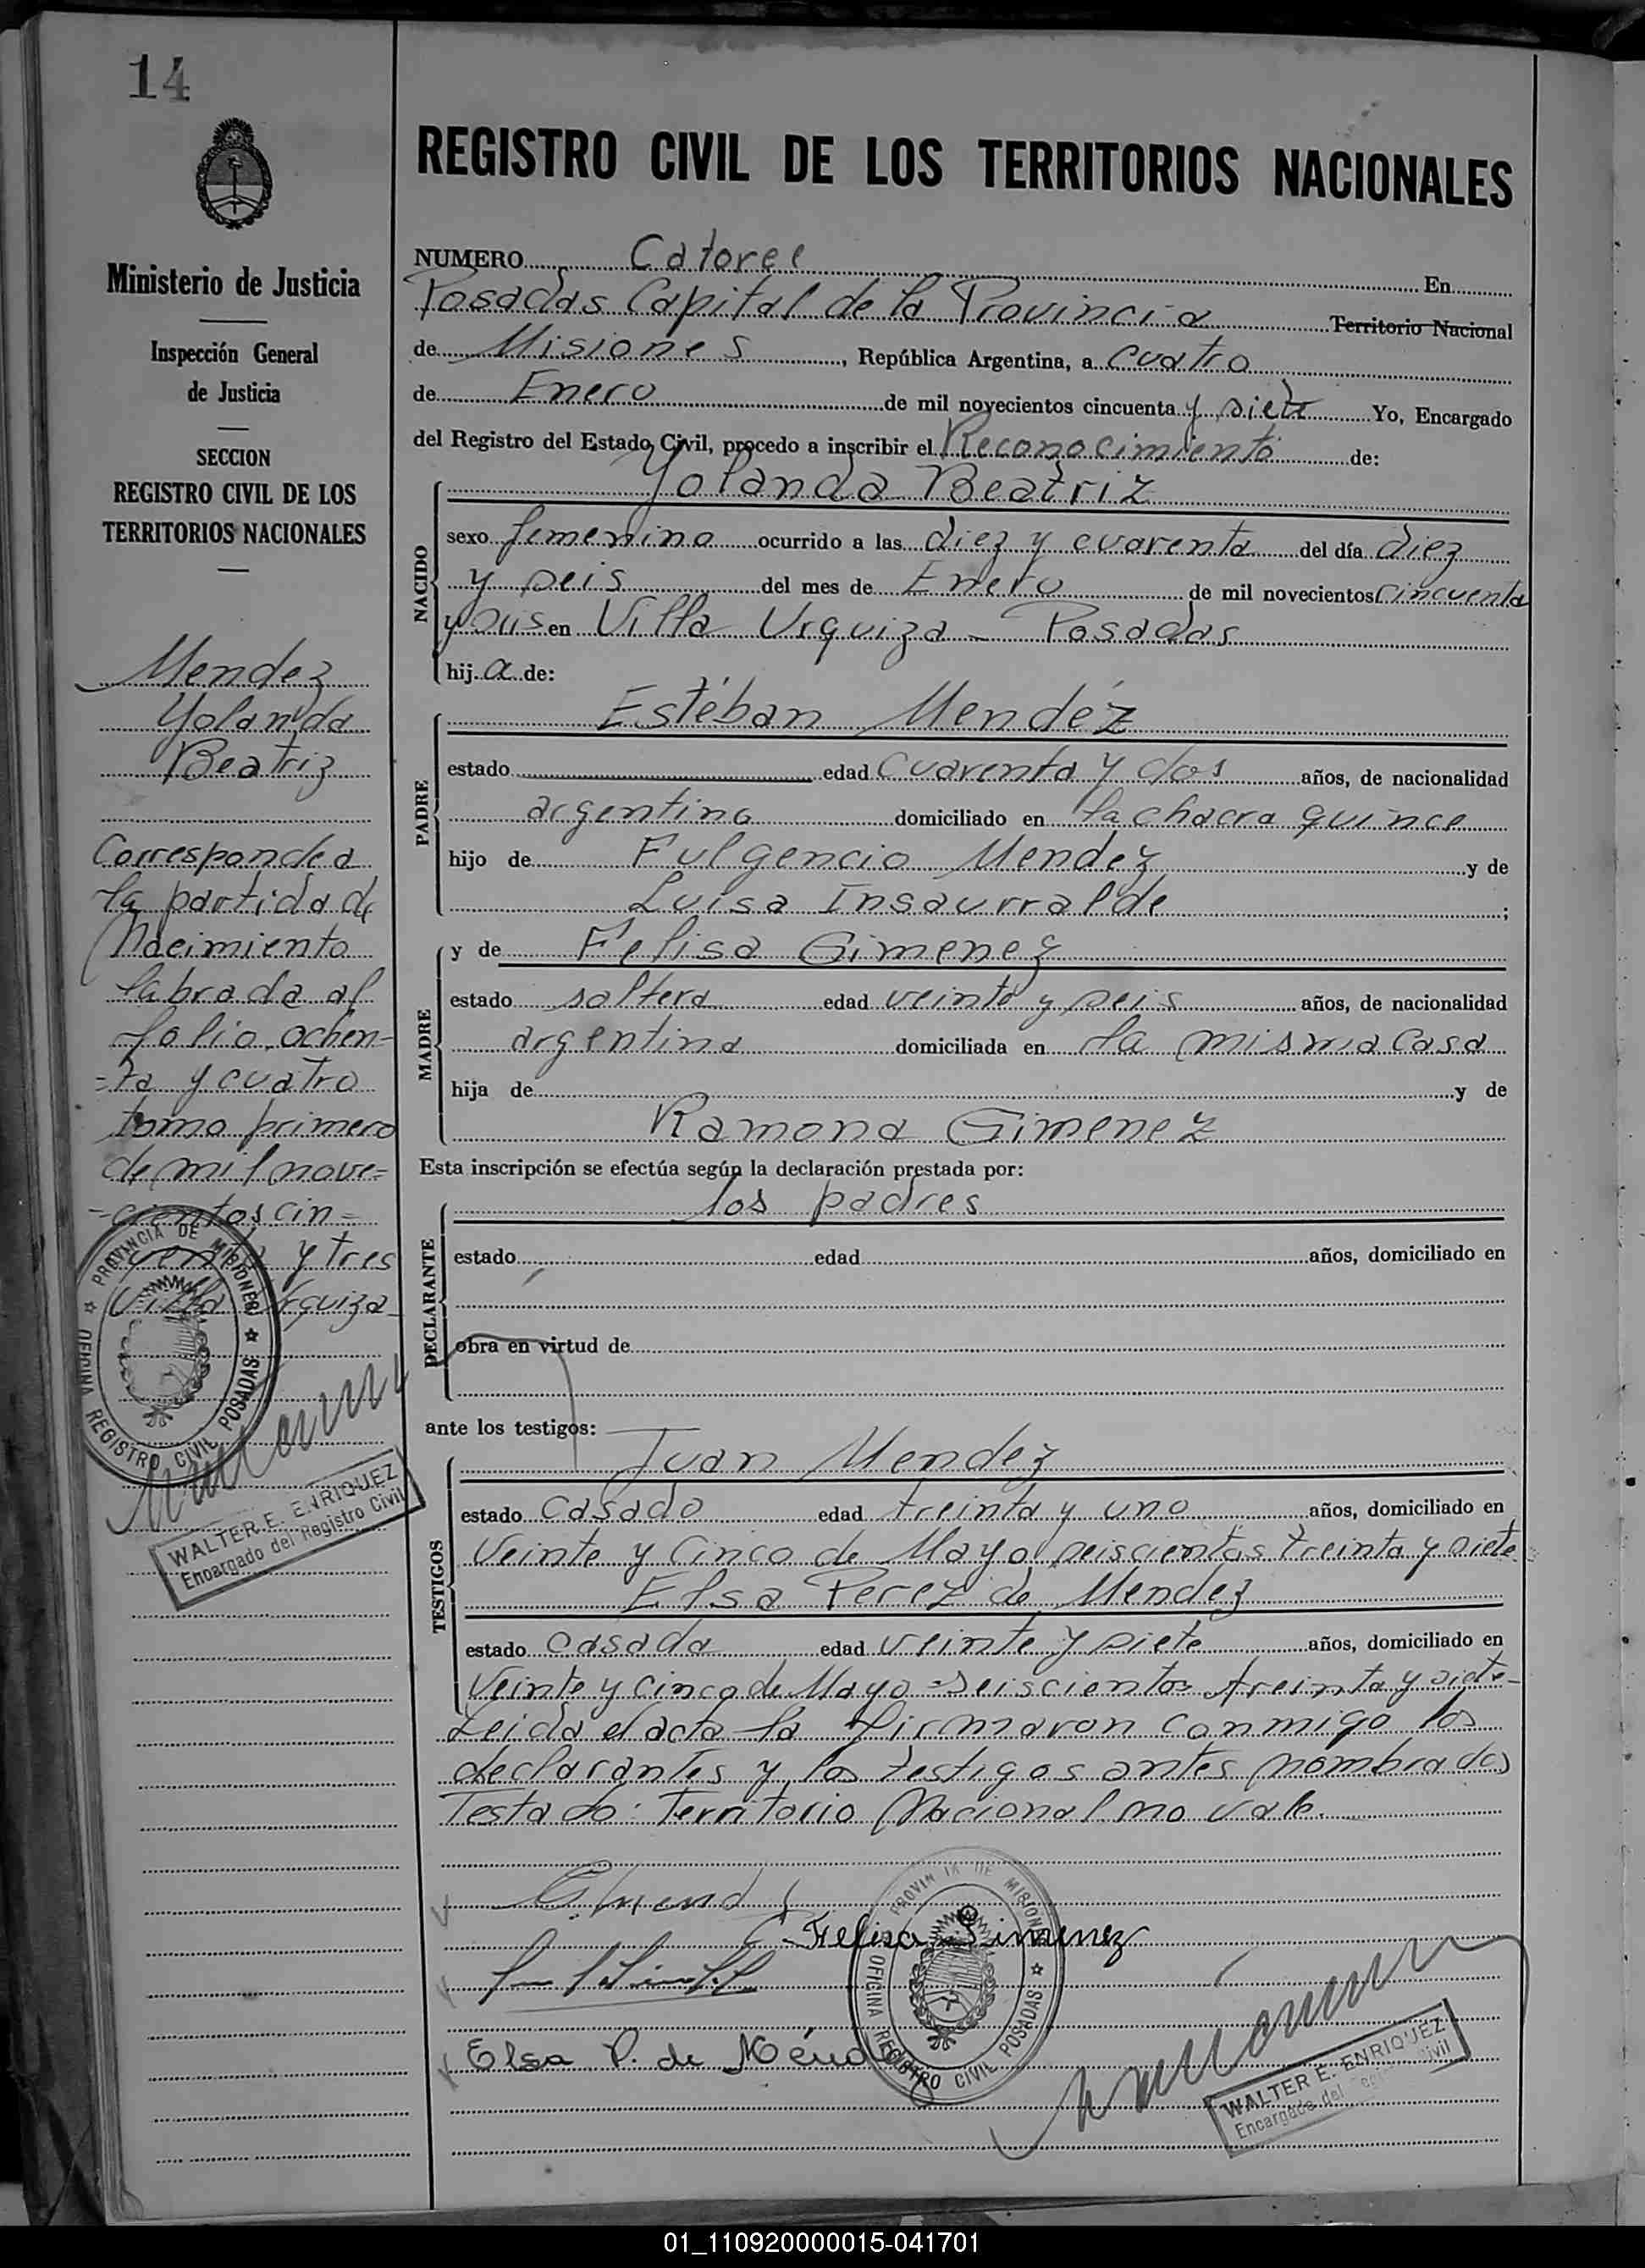 14
REGISTRO CIVIL DE LOS TERRITORIOS NACIONALES
Ministerio de Justicia
Inspección General
de Justicia
SECCION
REGISTRO CIVIL DE LOS
TERRITORIOS NACIONALES
Mendez
Yolanda
Beatriz
Corresponde a
la partida de
Nacimiento
labrada al
folio ochen-
=ta y cuatro
tomo primero
de mil nove=
=cientos cin=
cuenta y tres
Villa Urquiza
PROVINCIA DE MISIONES
OFICINA REGISTRO CIVIL POSADAS
WALTER E. ENRIQUEZ
Encargado del Registro Civil
NUMERO Catorce En
Posadas Capital de la Provincia Territorio Nacional
de Misiones, República Argentina, a cuatro
de Enero de mil novecientos cincuenta y siete Yo, Encargado
del Registro del Estado Civil, procedo a inscribir el Reconocimiento de:
NACIDO
Yolanda Beatriz
sexo femenino ocurrido a las diez y cuarenta del día diez
y seis del mes de Enero de mil novecientos cincuenta
y en Villa Urquiza - Posadas
hij a de:
PADRE
Estéban Mendéz
estado edad cuarenta y dos años, de nacionalidad
argentino domiciliado en la chacra quince
hijo de Fulgencio Mendez y de
Luisa Insaurralde ;
MADRE
y de Felisa Gimenez
estado soltera edad veinte y seis años, de nacionalidad
argentina domiciliada en la misma casa
hija de y de
Ramona Gimenez
Esta inscripción se efectúa según la declaración prestada por:
DECLARANTE
los padres
estado edad años, domiciliado en
obra en virtud de
ante los testigos:
TESTIGOS
Juan Mendez
estado casado edad treinta y uno años, domiciliado en
Veinte y Cinco de Mayo seiscientos treinta y siete
Elsa Perez de Mendez
estado casada edad veinte y siete años, domiciliado en
Veinte y cinco de Mayo = seiscientos treinta y siete-
Leida el acta la firmaron conmigo los
declarantes y los testigos antes nombrados
Testado: Territorio Nacional no vale.
Felisa Gimenez
Elsa P. de Méndez
PROVINCIA DE MISIONES
OFICINA REGISTRO CIVIL POSADAS
WALTER E. ENRIQUEZ
Encargado del Registro Civil
01_110920000015-041701